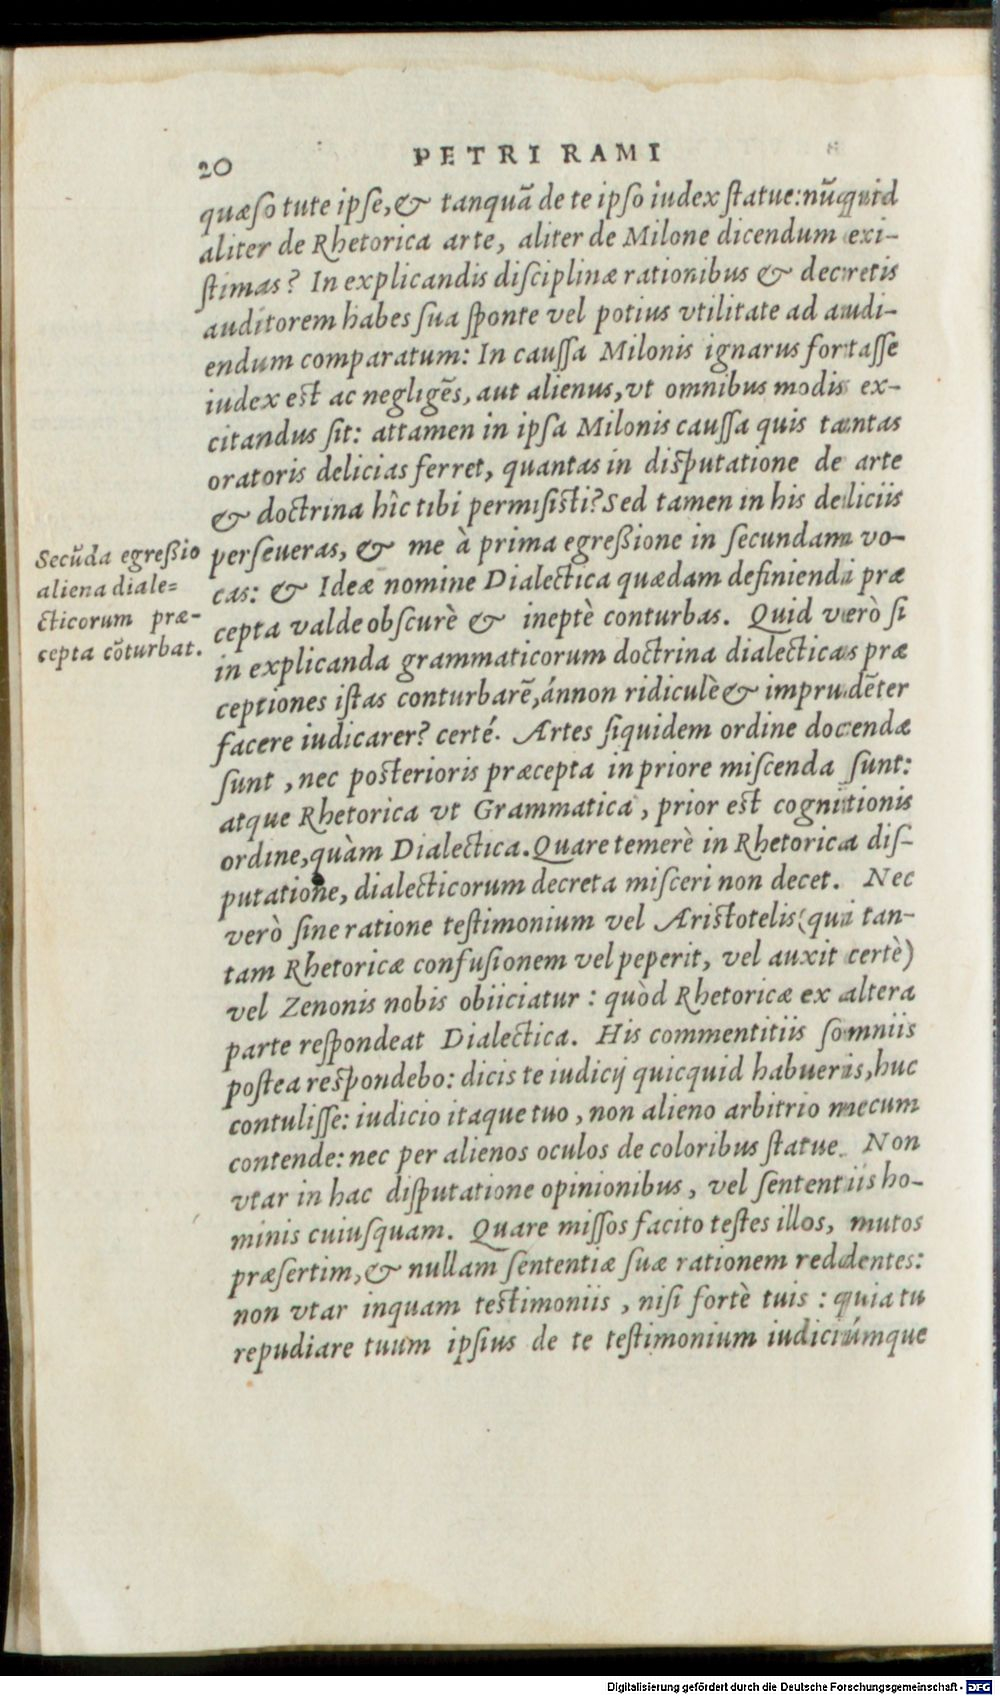 20 PETRI RAMI
quæso tute ipse, & tanquā de te ipso iudex statue: nūquid
aliter de Rhetorica arte, aliter de Milone dicendum exi-
stimas? In explicandis disciplinæ rationibus & decretis
auditorem habes sua sponte vel potius vtilitate ad audi-
endum comparatum: In caussa Milonis ignarus fortasse
iudex est ac negligēs, aut alienus, vt omnibus modis ex-
citandus sit: attamen in ipsa Milonis caussa quis tantas
oratoris delicias ferret, quantas in disputatione de arte
& doctrina hîc tibi permisisti? Sed tamen in his deliciis
perseueras, & me à prima egreßione in secundam vo-
cas: & Ideæ nomine Dialectica quædam definiendi præ
cepta valde obscurè & ineptè conturbas. Quid verò si
in explicanda grammaticorum doctrina dialecticas præ
ceptiones istas conturbarē, ánnon ridiculè & imprudēter
facere iudicarer? certé. Artes siquidem ordine docendæ
sunt, nec posterioris præcepta in priore miscenda sunt:
atque Rhetorica vt Grammatica, prior est cognitionis
ordine, quàm Dialectica. Quare temerè in Rhetorica dis-
putatione, dialecticorum decreta misceri non decet. Nec
verò sine ratione testimonium vel Aristotelis (qui tan-
tam Rhetoricæ confusionem vel peperit, vel auxit certè)
vel Zenonis nobis obiiciatur: quòd Rhetoricæ ex altera
parte respondeat Dialectica. His commentitiis somniis
postea respondebo: dicis te iudicij quicquid habueris, huc
contulisse: iudicio itaque tuo, non alieno arbitrio mecum
contende: nec per alienos oculos de coloribus statue. Non
vtar in hac disputatione opinionibus, vel sententiis ho-
minis cuiusquam. Quare missos facito testes illos, mutos
præsertim, & nullam sententiæ suæ rationem reddentes:
non vtar inquam testimoniis, nisi fortè tuis: quia tu
repudiare tuum ipsius de te testimonium iudiciúmque
Secūda egreßio
aliena diale=
cticorum præ-
cepta cōturbat.
Digitalisierung gefördert durch die Deutsche Forschungsgemeinschaft - DFG